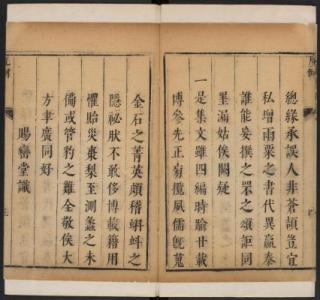 總緣承誤人非蒼頡豈宜
私增雨粟之書代異嬴秦
誰能妄撰之眾之頌詎同
墨漏姑俟闕疑
一是集文雖四編時踰廿載
博參先正旁攬風儒旣蒐
金石之菁英頗稽蝌蚪之
隱祕狀不敢侈博載籍用
懼貽災棗梨至測蠡之未
備或管豹之難全敬俟大
方聿廣同好
賜巒堂識